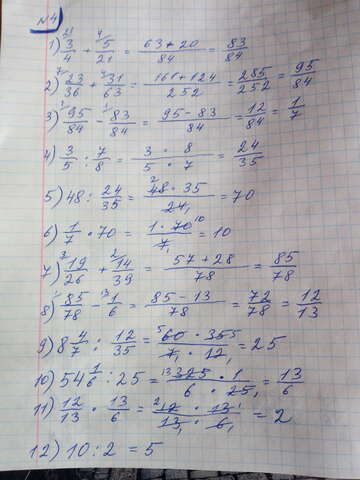 №4
1) 21 3/4 + 4 5/21 = (63 + 20)/84 = 83/84
2) 7 23/36 + 4 31/63 = (161 + 124)/252 = 285/252 = 95/84
3) 1 95/84 - 1 83/84 = (95 - 83)/84 = 12/84 = 1/7
4) 3/5 : 7/8 = (3 · 8)/(5 · 7) = 24/35
5) 48 : 24/35 = (2 48 · 35)/(24 1) = 70
6) 1/7 · 70 = (1 · 70 10)/(7 1) = 10
7) 3 19/26 + 2 14/39 = (57 + 28)/78 = 85/78
8) 1 85/78 - 13 1/6 = (85 - 13)/78 = 72/78 = 12/13
9) 8 4/7 : 12/35 = (5 60 · 35 5)/(7 1 · 12 1) = 25
10) 54 1/6 : 25 = (13 325 · 1)/(6 · 25 1) = 13/6
11) 12/13 · 13/6 = (2 12 · 13 1)/(13 1 · 6 1) = 2
12) 10 : 2 = 5